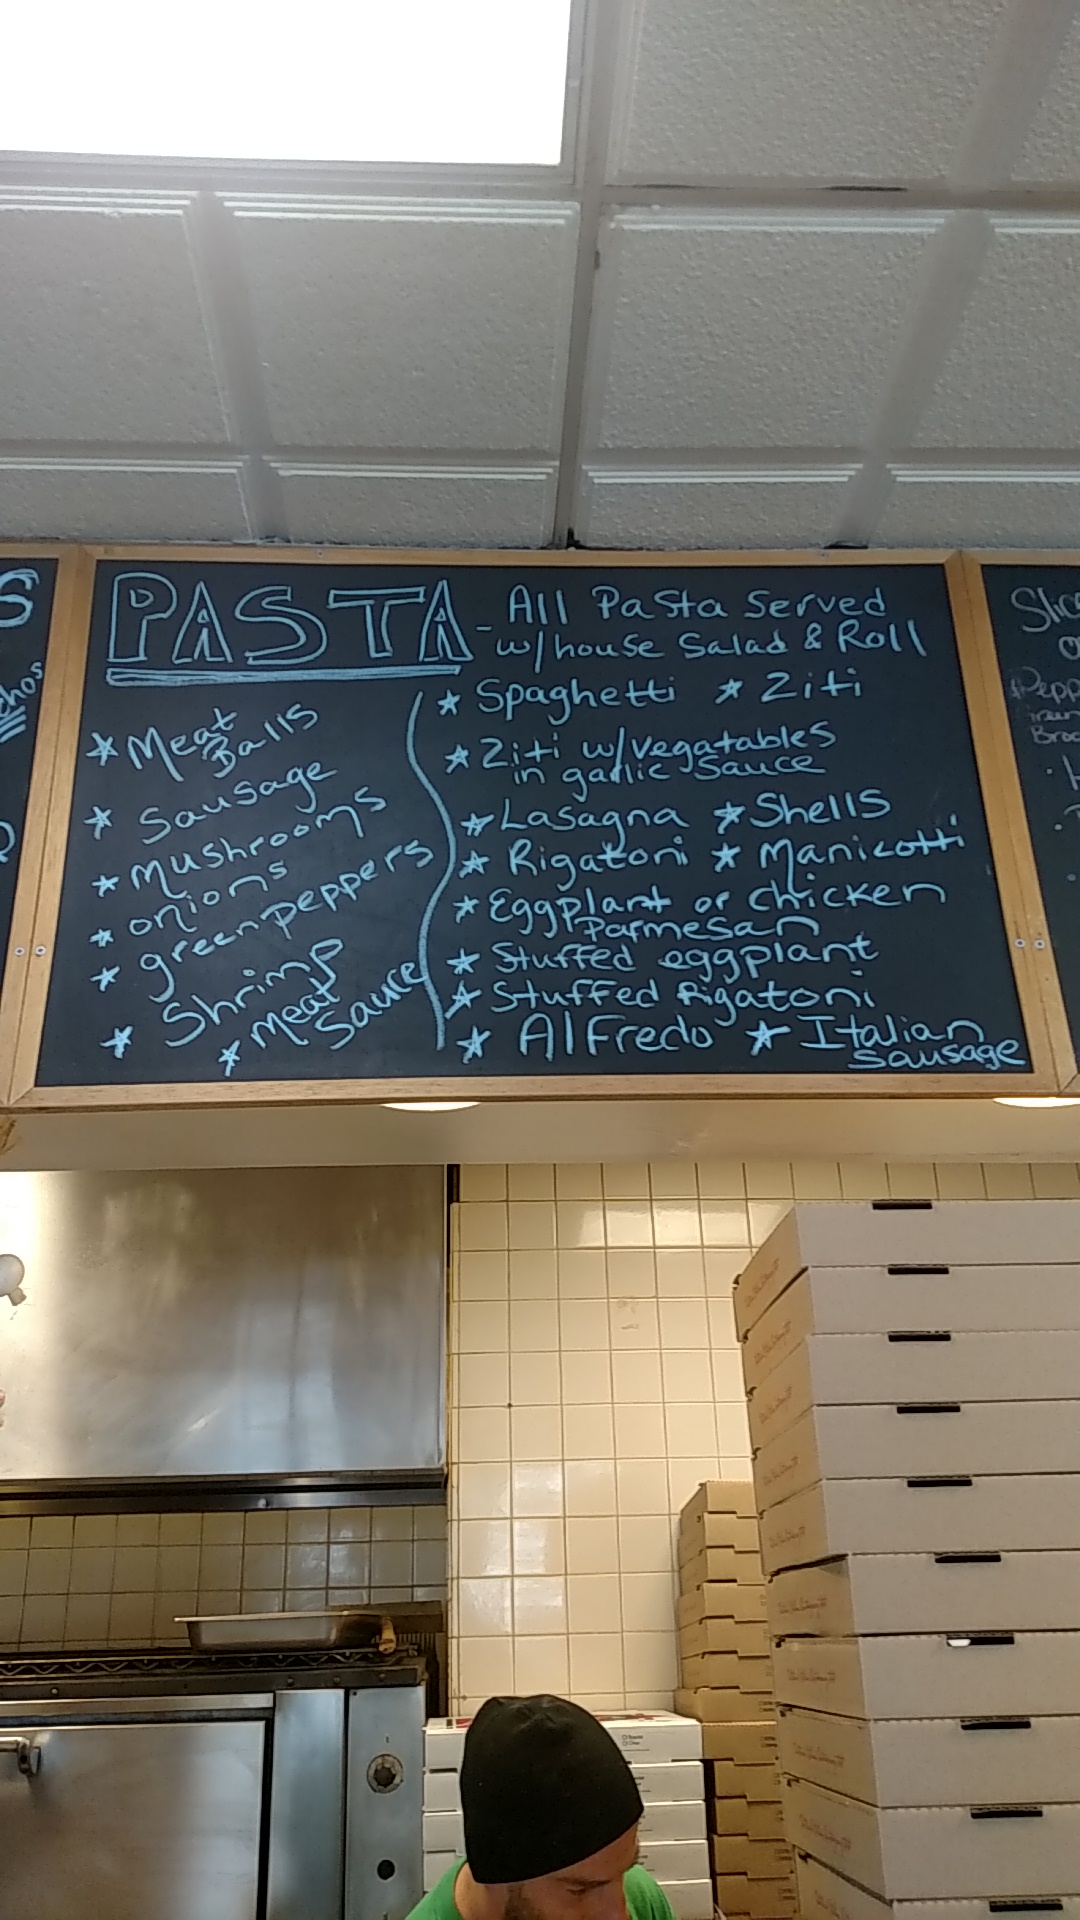 PASTA - All Pasta Served
w/house Salad & Roll
★ Meat
Balls
★ Sausage
★ mushrooms
★ onions
★ greenpeppers
★ Shrimp
★ Meat
Sauce
★ Spaghetti ★ Ziti
★ Ziti w/vegatables
in garlic sauce
★ Lasagna ★ Shells
★ Rigatoni ★ Manicotti
★ Eggplant or chicken
Parmesan
★ Stuffed eggplant
★ Stuffed Rigatoni
★ AlFredo ★ Italian
Sausage